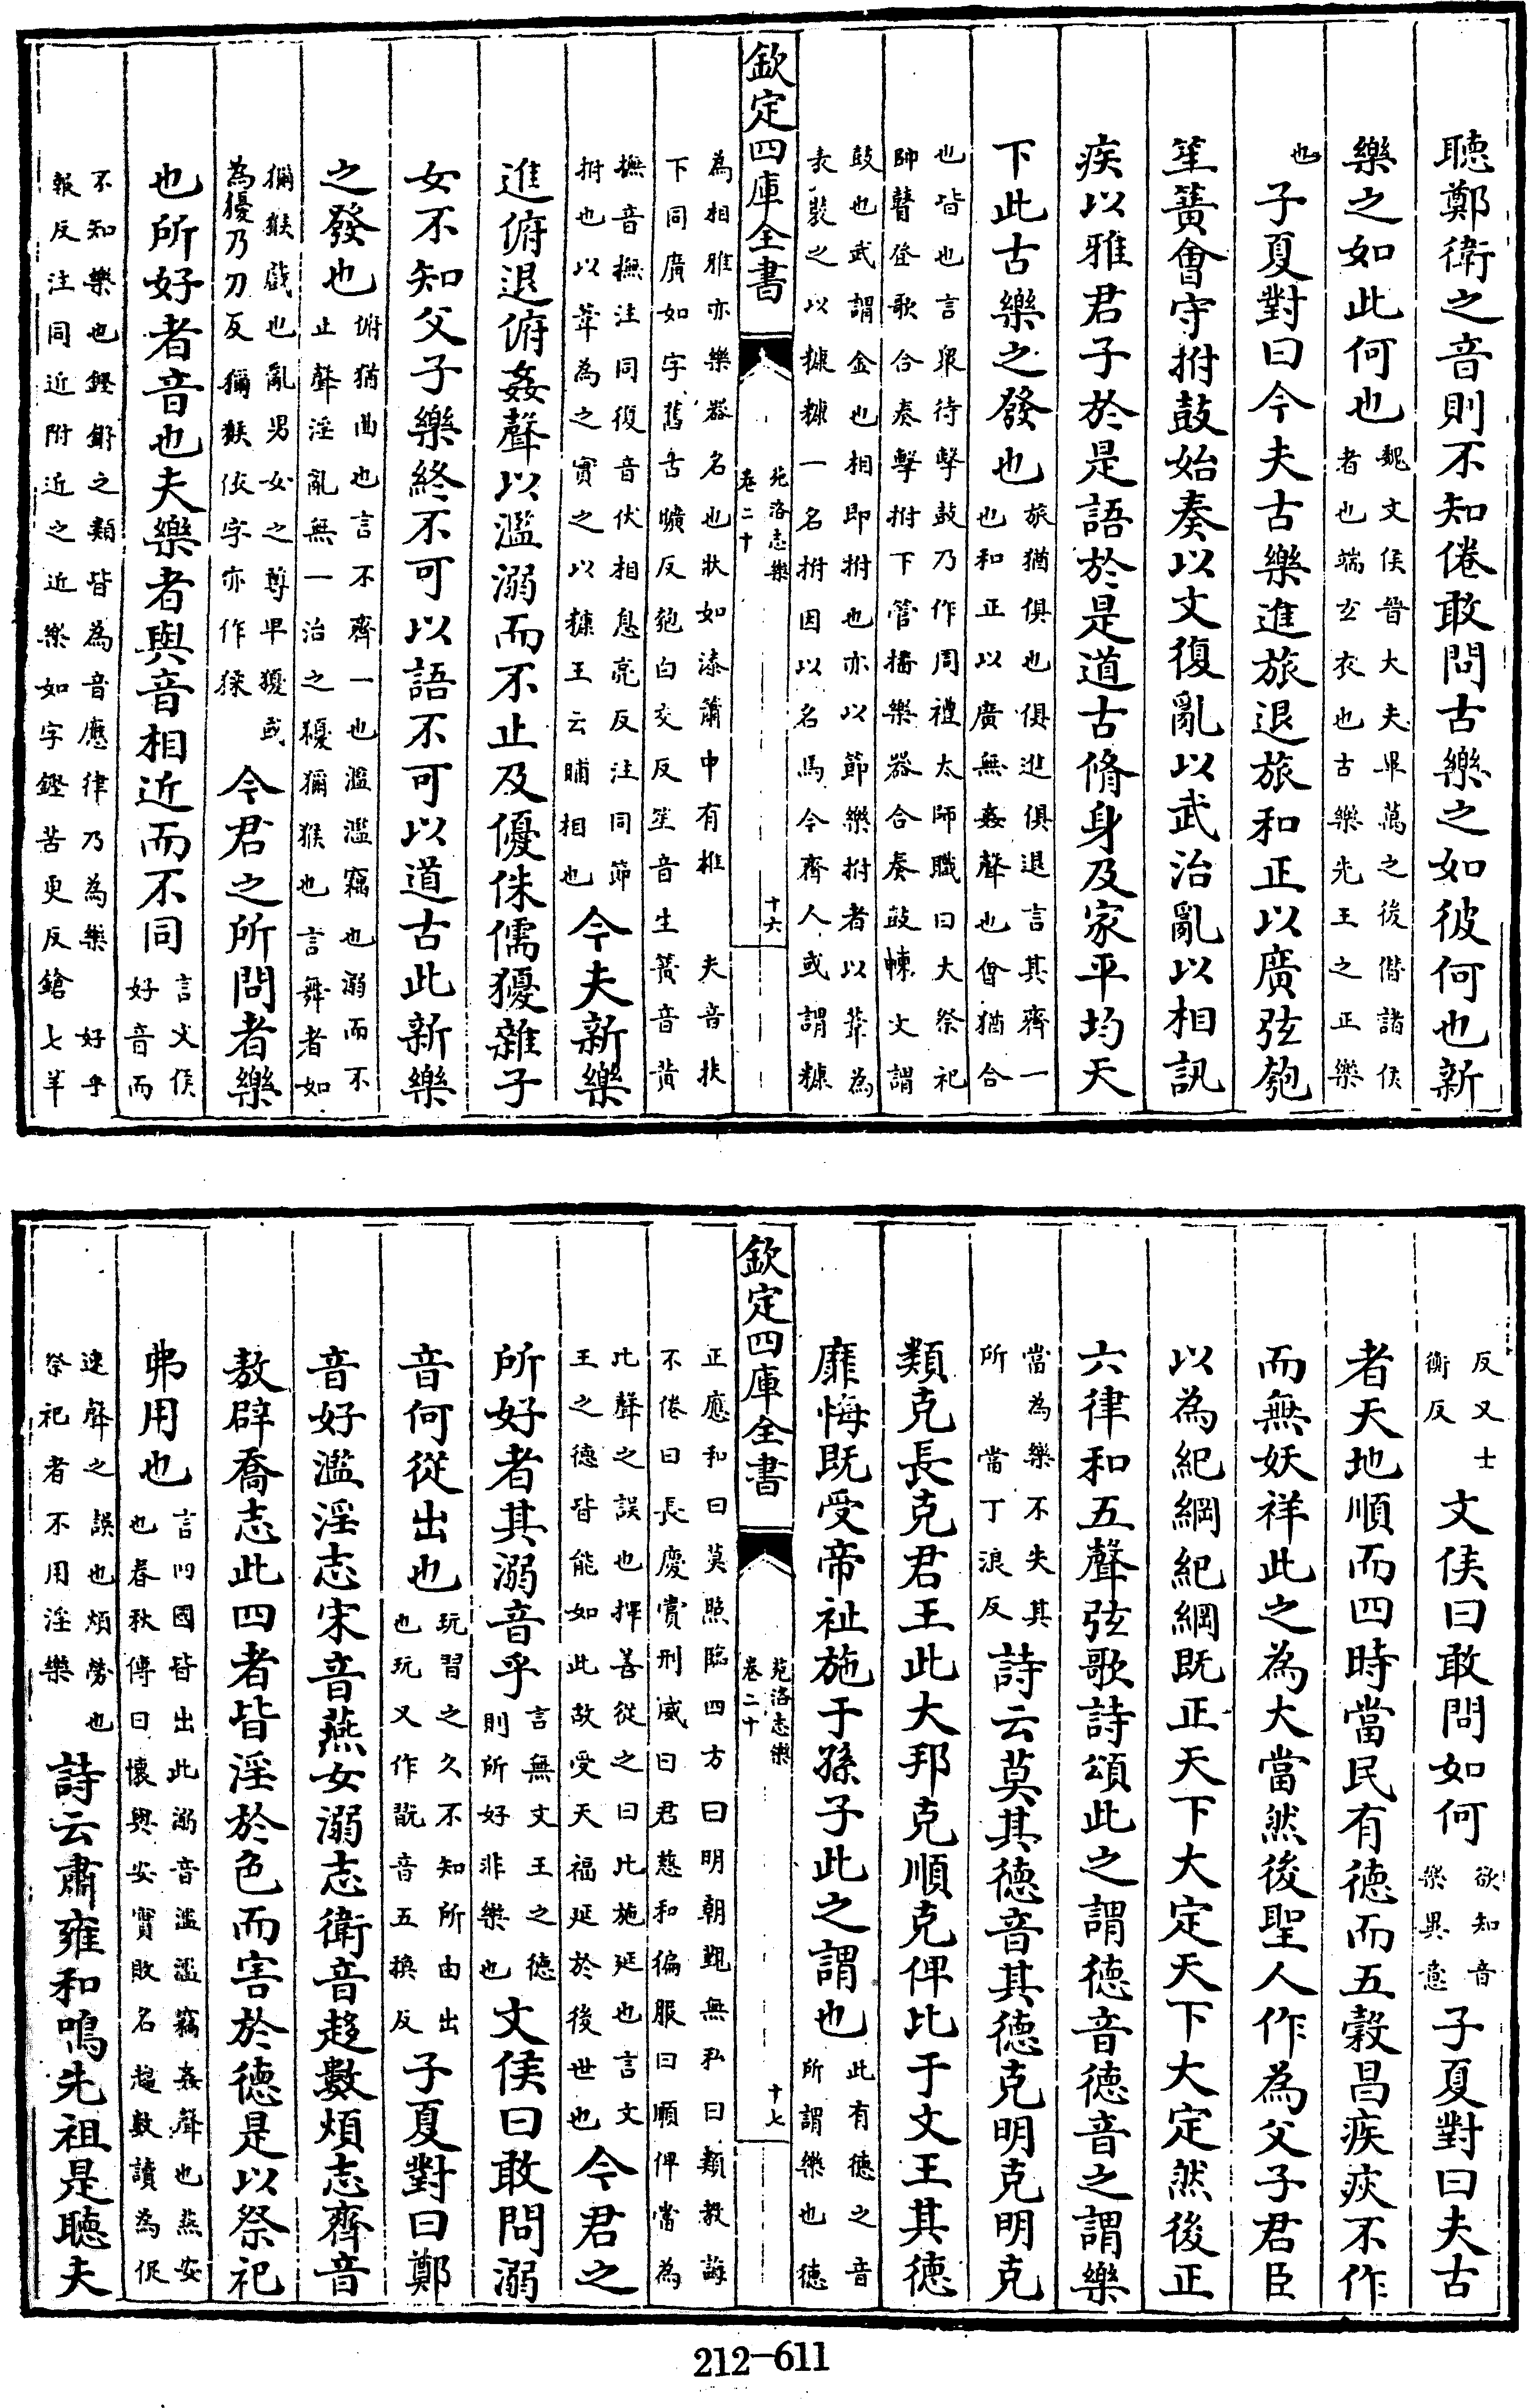 聽鄭衛之音則不知倦敢問古樂之如彼何也新
樂之如此何也魏文侯晉大夫畢萬之後僭諸侯者也端玄衣也古樂先王之正樂
也子夏對曰今夫古樂進旅退旅和正以廣弦匏
笙簧會守拊鼓始奏以文復亂以武治亂以相訊
疾以雅君子於是語於是道古脩身及家平均天
下此古樂之發也旅猶俱也俱進俱退言其齊一也和正以廣無姦聲也會猶合
也皆也言衆待擊鼓乃作周禮太師職曰大祭祀帥瞽登歌合奏擊拊下管播樂器合奏鼓朄文謂
鼓也武謂金也相即拊也亦以節樂拊者以葦為表裝之以穅穅一名拊因以名焉今齊人或謂穅
欽定四庫全書
苑洛志樂
卷二十
十六
為相雅亦樂器名也狀如漆筩中有椎 夫音扶下同廣如字舊古曠反匏白交反笙音生簧音黃
撫音撫注同復音伏相息亮反注同節拊也以葦為之實之以穅王云輔相也今夫新樂
進俯退俯姦聲以濫溺而不止及優侏儒獶雜子
女不知父子樂終不可以語不可以道古此新樂
之發也俯猶曲也言不齊一也濫濫竊也溺而不止聲淫亂無一治之獶獼猴也言舞者如
獼猴戲也亂男女之尊卑獶或為獿乃刀反獼猴依字亦作猱今君之所問者樂
也所好者音也夫樂者與音相近而不同言文侯好音而
不知樂也鏗鏘之類皆為音應律乃為樂 好呼報反注同近附近之近樂如字鏗苦更反鎗七羊
反又士衡反文侯曰敢問如何欲知音樂異意子夏對曰夫古
者天地順而四時當民有德而五穀昌疾疢不作
而無妖祥此之為大當然後聖人作為父子君臣
以為紀綱紀綱既正天下大定天下大定然後正
六律和五聲弦歌詩頌此之謂德音德音之謂樂
當為樂不失其所 當丁浪反詩云莫其德音其德克明克明克
類克長克君王此大邦克順克俾比于文王其德
靡悔既受帝祉施于孫子此之謂也此有德之音所謂樂也德
欽定四庫全書
苑洛志樂
卷二十
十七
正應和曰莫照臨四方曰明朝覲無私曰類教誨不倦曰長慶賞刑威曰君慈和徧服曰順俾當為
比聲之誤也擇善從之曰比施延也言文王之德皆能如此故受天福延於後世也今君之
所好者其溺音乎言無文王之德則所好非樂也文侯曰敢問溺
音何從出也玩習之久不知所由出也玩又作翫音五換反子夏對曰鄭
音好濫淫志宋音燕女溺志衛音趨數煩志齊音
敖辟喬志此四者皆淫於色而害於德是以祭祀
弗用也言四國皆出此溺音濫濫竊姦聲也燕安也春秋傳曰懷與安實敗名趨數讀為促
速聲之誤也煩勞也祭祀者不用淫樂詩云肅雍和鳴先祖是聽夫
212-611